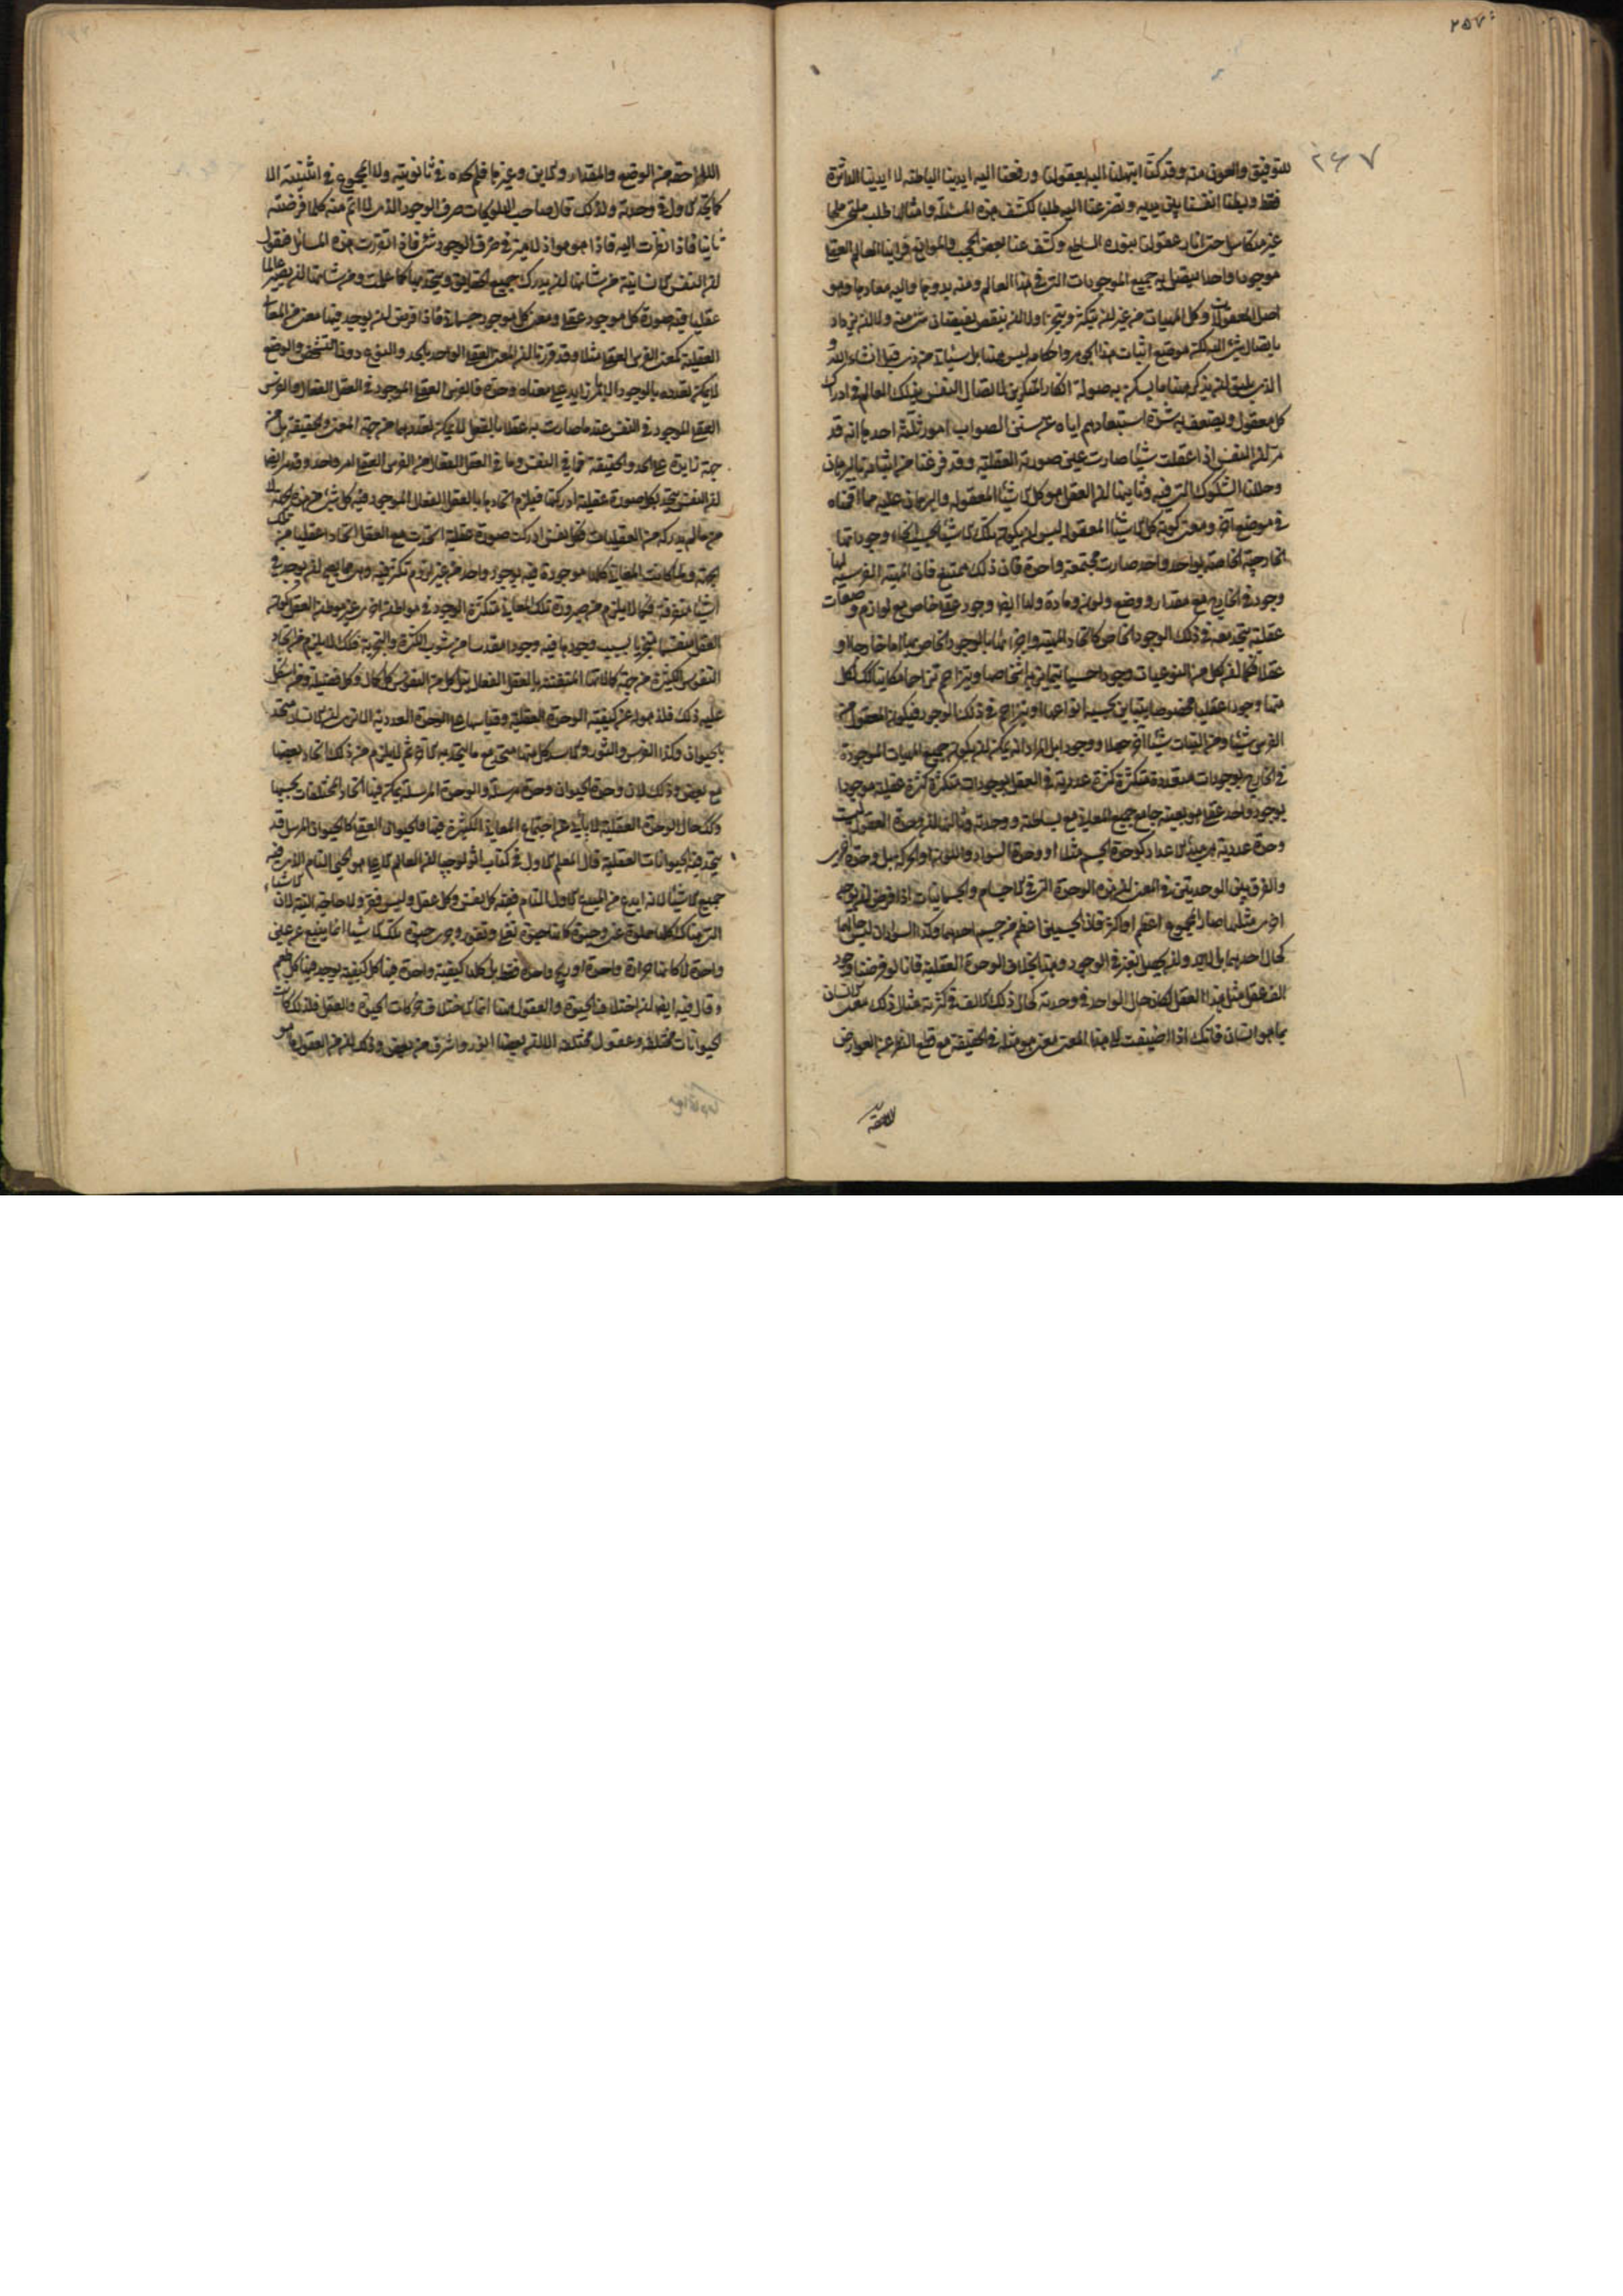 ٢٥٧
٢٦٧
للتوفيق والعون منه وقد كنّا ابتهلنا اليه بعقولنا ورفعنا اليه ايدينا الباطنة لا ايدينا الداثرة
فقط وبسطنا انفسنا بين يديه وتضرعنا اليه طلبا لكشف هذه المسئلة وامثالها طلب ملتجئ ملجا
غير متكاسل حتى انار عقولنا بنوره الساطع وكشف عنا بعض الحجب والموانع فراينا العالم العقلى
موجودا واحدا يتصل به جميع الموجودات التى فى هذا العالم ومنه بدوها واليه معادها وهو
اصل المعقولات وكل المهيات من غير ان يتكثر ويتجزى ولا ان ينقص بفيضان شئ منه ولا ان يزداد
باتصال شئ اليه لكن موضع اثبات هذا الجوهر واحكامه ليس هنا بل سياتى من ذى قبل انشاء الله
الذى يليق ان يذكر ههنا ما يسكن به صولة انكار المنكرين لاتصال النفس بذلك العالم فى ادراك
كل معقول ويضعف به شدة استبعادهم اياه عن سنن الصواب امور ثلثة احدها انه قد
مر ان النفس اذا عقلت شيئا صارت عين صورته العقلية وقد فرغنا من اثباته بالبرهان
وحللنا الشكوك التى فيه وثانيها ان العقل هو كل الاشياء المعقوله والبرهان عليه مما اقمناه
فى موضع آخر ومعنى كونه كل الاشياء المعقوله ليس ان يكون تلك الاشياء بحسب انحاء وجوداتها
الخارجية الخاصة بواحد واحد صارت مجتمعة واحدة فان ذلك ممتنع فان المهية الفرسية لها
وجود فى الخارج مع مقدار ووضع ولون ومادة ولها ايضا وجود عقلى خاص مع لوازم وصفات
عقلية يتحد معه فى ذلك الوجود الخاص كاتحاد المهية واجزائها بالوجود الخاص بها اما خارجا او
عقلا فكما ان لكل من النوعيات وجودا حسيا يتمايز به اشخاصها ويتزاحم تزاحما مكانيا كذلك لكل
منها وجودا عقليا مخصوصا يتباين بحسبه انواعها ويتزاحم فى ذلك الوجود فيكون المعقول من
الفرس شيئا ومن النبات شيئا آخر جعلا ووجودا بل المراد انه يمكن ان يكون جميع المهيات الموجودة
فى الخارج بوجودات متعددة متكثرة كثرة عددية وفى العقل بوجودات متكثرة كثرة عقلية موجودا
بوجود واحد عقلى هو بعينه جامع جميع المعانى مع بساطته ووحدته وثالثها ان وحدة العقول ليست
وحدة عددية هى مبدء الاعداد كوحدة الجسم مثلا او وحدة السواد واللون او الحركة بل وحدة اخرى
والفرق بين الوحدتين فى المعنى ان هذه الوحدة التى فى الاجسام والجسمانيات اذا فرض ان يوجد
اخرى مثلها صار المجموع اعظم او اكثر فان الجسمين اعظم من جسم احدهما وكذا السوادان ليس حالهما
كحال احدهما بل لابد وان يحصل تغير فى الوجود وهذا بخلاف الوحدة العقلية فانا لو فرضنا وجود
الف عقل مثل هذا العقل لكان حال الواحد فى وحدته كحال ذلك الالف فى كثرته مثال ذلك معنى الانسان
بما هو انسان فانك اذا اضيفت الى هذا المعنى معنى هو مثله فى الحقيقة مع قطع النظر عن العوارض
اللاحقة
اللاحقة من الوضع والمقدار والاين وغيرها فلم تجده فى ثانويته ولا المجموع فى اثنينيته الا
كما تجد الاول فى وحدته ولذلك قال صاحب التلويحات صرف الوجود الذى لا اتم منه كلما فرضته
ثانيا فاذا نظرت اليه فاذا هو هو اذ لا ميز فى صرف الوجود شئ فاذا تقررت هذه المسائل فنقول
ان النفس الانسانية من شانها ان يدرك جميع الحقايق ويتحد بها كما علمت ومن شانها ان يصير عالما
عقليا فيه صورة كل موجود عقلى ومعنى كل موجود جسمانى فاذا فرض ان يوجد فيها معنى من المعانى
العقلية كمعنى الفرس العقلى مثلا وقد قررنا ان المعنى العقلى الواحد بالحد والنوع دون التشخص والوضع
لا يمكن تعدده بالوجود الا بامر زايد على معناه وحده فالفرس العقلى الموجود فى العقل الفعال والفرس
العقلى الموجود فى النفس عند ما صارت به عقلا بالفعل لا يمكن تعددهما من جهة المعنى والحقيقة بل من
جهة زايدة على الحد والحقيقة فما فى النفس وما فى العقل الفعال من الفرس العقلى امر واحد وقد مر ايضا
ان النفس يتحد بكل صورة عقلية ادركتها فيلزم اتحادها بالعقل الفعال الموجود فيه كل شئ من هذه الجهة لا
من ما لم يدركه من العقليات فكل نفس ادركت صورة عقلية اتحدت مع العقل الفعال اتحادا عقليا من تلك
الجهة ولما كانت المعانى كلها موجودة فيه بوجود واحد من غير لزوم تكثر فيه وهى مما يصح ان يوجد فى
اشياء متفرقة فكما لا يلزم من صيرورة تلك المعانى متكثرة الوجود فى مواطن اخرى غير موطن العقل كون
العقل منقسما متجزيا بسبب وجودها فيه وجودا مقدسا من شوب الكثرة والتجزية فكذلك لا يلزم من اتحاد
النفوس الكثيرة من جهة كمالاتها المتفننة بالعقل الفعال تجزيه ولا نيل كل من النفوس كل كمال وكل فضيلة ومن اشكل
عليه ذلك فلذهوله عن كيفية الوحدة العقلية وقياسها على الوحدة العددية الا ترى ان الانسان متحد
بالحيوان وكذا الفرس والثور والاسد كل منها متحد مع ما يتحد به الآخر ثم لا يلزم من ذلك اتحاد بعضها
مع بعض وذلك لان وحدة الحيوان وحدة مرسلة والوحدة المرسلة يمكن فيها اتحاد المختلفات بحسبها
وكذا حال الوحدة العقلية لا يأبى عن اجتماع المعانى الكثيرة فيها فالحيوان العقلى كالحيوان المرسل قد
يتحد فيه الحيوانات العقلية قال المعلم الاول فى كتاب اثولوجيا ان العالم الاعلى هو الحى التام الذى فيه
جميع الاشياء لانه ابدع من المبدع الاول التام ففيه كل نفس وكل عقل وليس فقر ولا حاجة البتة لان الاشياء
التى هناك كلها مملوة غنى وحيوة كانها حيوة تغلى وتفور وجرى حيوة تلك الاشياء انما ينبع عن عين
واحدة لا كانها حرارة واحدة او ريح واحدة فقط بل كلها كيفية واحدة فيها كل كيفية يوجد فيها كل طعم
وقال فيه ايضا ان اختلاف الحيوة والعقول ههنا انما لاختلاف حركات الحيوة والعقل فلذلك كانت
حيوانات مختلفة وعقول مختلفة الا ان بعضها انور واشرف من بعض وذلك ان من العقول ما هو